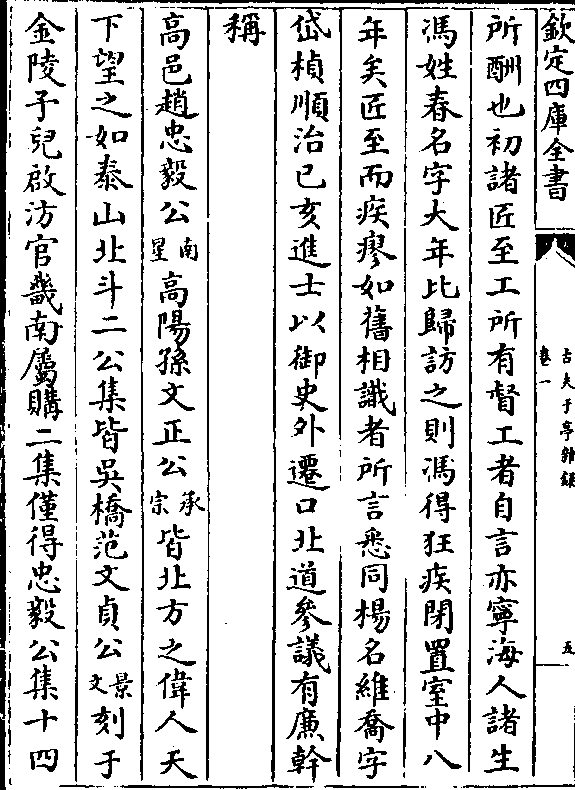 欽定四庫全書
古夫于亭雜録
卷一
五
所酬也初諸匠至工所有督工者自言亦寧海人諸生
馮姓春名字大年比歸訪之則馮得狂疾閉置室中八
年矣匠至而疾瘳如舊相識者所言悉同楊名維喬字
岱楨順治已亥進士以御史外遷口北道參議有廉幹
稱
高邑趙忠毅公南星高陽孫文正公承宗皆北方之偉人天
下望之如泰山北斗二公集皆吳橋范文貞公景文刻于
金陵子兒啟汸官畿南屬購二集僅得忠毅公集十四